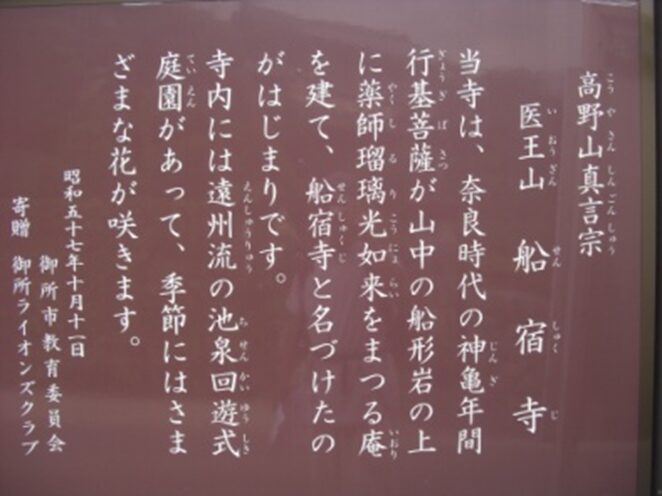 高野山真言宗
医王山 船宿寺
当寺は、奈良時代の神亀年間
行基菩薩が山中の船形岩の上
に薬師瑠璃光如来をまつる庵
を建て、船宿寺と名づけたの
がはじまりです。
寺内には遠州流の池泉回遊式
庭園があって、季節にはさま
ざまな花が咲きます。
昭和五十七年十月十一日
御所市教育委員会
寄贈 御所ライオンズクラブ